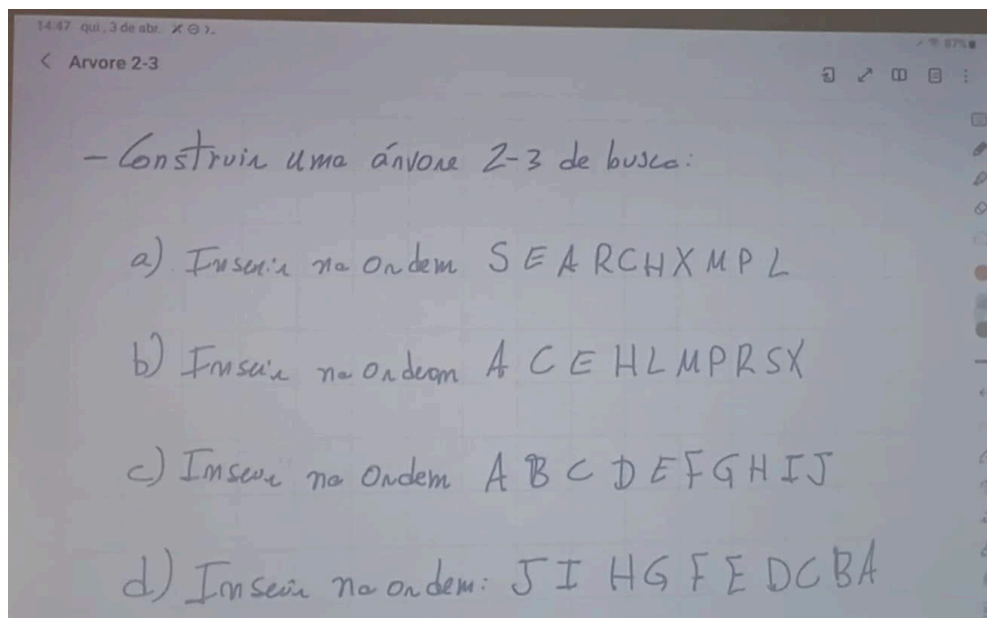 14:47 qui., 3 de abr.
87%
< Arvore 2-3
- Construir uma árvore 2-3 de busca:
a) Inserir na Ordem S E A R C H X M P L
b) Inserir na Ordem A C E H L M P R S X
c) Inserir na Ordem A B C D E F G H I J
d) Inserir na ordem: J I H G F E D C B A